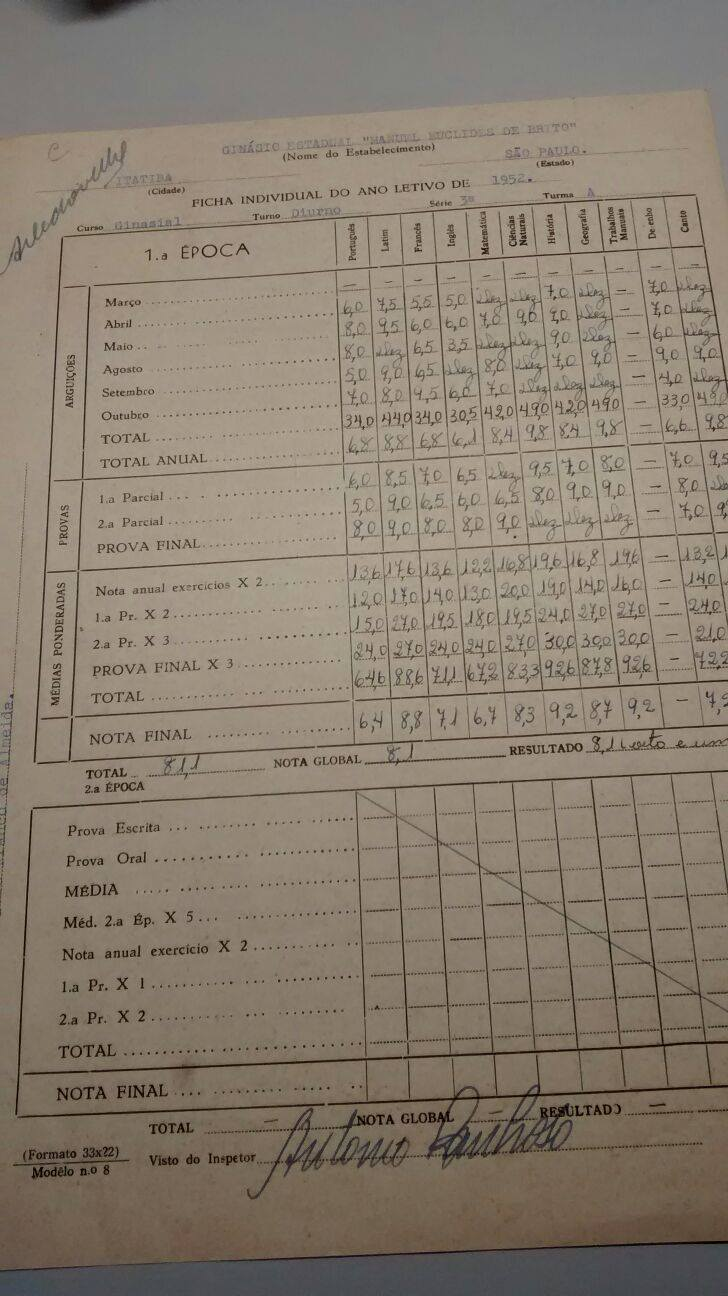 C
GINÁSIO ESTADUAL "MANUEL EUCLIDES DE BRITO"
(Nome do Estabelecimento)
ITATIBA SÃO PAULO.
(Cidade) (Estado)
FICHA INDIVIDUAL DO ANO LETIVO DE 1952.
Curso Ginasial Turno Diurno Série 3ª Turma A
1.a ÉPOCA Português Latim Francês Inglês Matemática Ciências Naturais História Geografia Trabalhos Manuais Desenho Canto
ARGUIÇÕES
Março — — — — — — — — — — —
Abril 6,0 7,5 5,5 5,0 dez dez 7,0 dez — 7,0 dez
Maio 8,0 9,5 6,0 6,0 7,0 9,0 9,0 dez — 7,0 dez
Agosto 8,0 dez 6,5 3,5 dez dez 9,0 dez — 6,0 dez
Setembro 5,0 9,0 6,5 dez 8,0 dez 7,0 9,0 — 9,0 9,0
Outubro 7,0 8,0 9,5 6,0 7,0 dez dez dez — 4,0 dez
TOTAL 34,0 44,0 34,0 30,5 42,0 49,0 42,0 49,0 — 33,0 49,0
TOTAL ANUAL 6,8 8,8 6,8 6,1 8,4 9,8 8,4 9,8 — 6,6 9,8
PROVAS
1.a Parcial 6,0 8,5 7,0 6,5 dez 9,5 7,0 8,0 — 7,0 9,5
2.a Parcial 5,0 9,0 6,5 6,0 6,5 8,0 9,0 9,0 — 8,0
PROVA FINAL 8,0 9,0 8,0 8,0 9,0 dez dez dez — 7,0
MÉDIAS PONDERADAS
Nota anual exercicios X 2 13,6 17,6 13,6 12,2 16,8 19,6 16,8 19,6 — 13,2
1.a Pr. X 2 12,0 17,0 14,0 13,0 20,0 19,0 14,0 16,0 — 14,0
2.a Pr. X 3 15,0 27,0 19,5 18,0 19,5 24,0 27,0 27,0 — 24,0
PROVA FINAL X 3 24,0 27,0 24,0 24,0 27,0 30,0 30,0 30,0 — 21,0
TOTAL 64,6 88,6 71,1 67,2 83,3 92,6 87,8 92,6 — 72,2
NOTA FINAL 6,4 8,8 7,1 6,7 8,3 9,2 8,7 9,2 — 7,2
TOTAL 81,1 NOTA GLOBAL 8,1 RESULTADO 8,1 (oito e um
2.a ÉPOCA
Prova Escrita
Prova Oral
MÉDIA
Méd. 2.a Ép. X 5
Nota anual exercício X 2
1.a Pr. X 1
2.a Pr. X 2
TOTAL
NOTA FINAL
TOTAL — NOTA GLOBAL — RESULTADO —
(Formato 33x22)
Modêlo n.o 8
Visto do Inspetor Antonio
de Almeida.